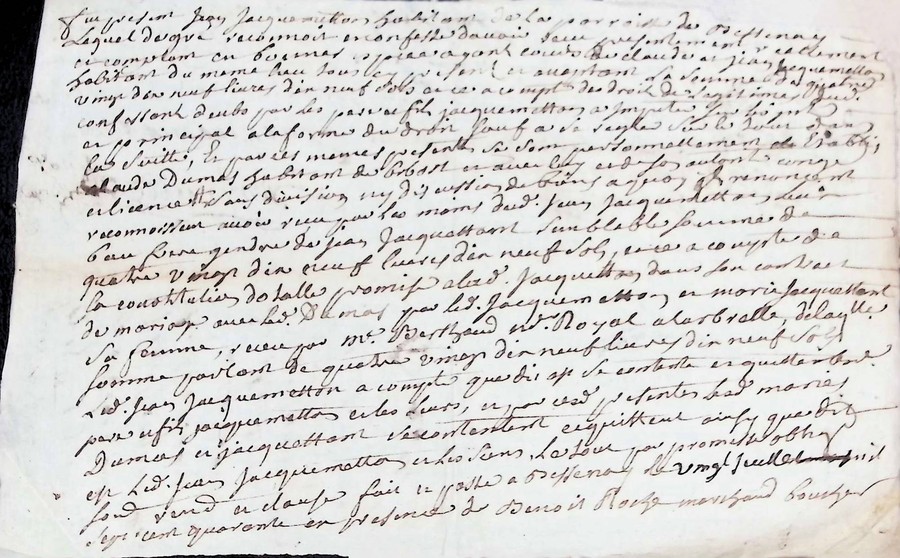 fut présent Jean Jacquemetton habitant de la parroisse de Bessenay
Lequel de gré reconnoit et confesse davoir receu presentement reellement
et comptant en bonnes espece ayant cours de claude et jean Jacquemetton
habitant du meme lieu tous presents et la somme de quatre
vingt dix neuf livres dix neuf sols et ce a compte des droits de legitimes
confessent deubs par les pere et fils jacquemetton a
et principal a la forme du droit sauf a se regler sur le tout dans
la suitte, Et par ces memes presentes se sont personnellement Etably
claude Dumas habitant de et avec luy et de son autorité
et licence sans division ny discussion de biens a quoy ils renoncent
reconnoissent avoir receu par les mains dud. jean jacquemetton leur
beau frere gendre de jean Jacquettant semblable somme de
quatre vingt dix neuf livres dix neuf sols, et ce a compte de
la constitution dotalle promise alad. Jacquettant dans son contract
de mariage avec led. Dumas par led. Jacquemetton et marie Jacquettant
sa femme, receu par me. Berthaud nre. Royal a larbresle de laquelle
somme partant de quatre vingt dix neuf livres dix neuf sols
Led. jean jacquemetton a compte que dit est se contente et quitte
pere et fils jacquemetton et les leurs, et par cesd. presentes lesd. mariés
Dumas et jacquettant se contentent et quittent ainsy que dit
est Led. jean Jacquemetton et les siens Le tout par promesse oblig
soud. renon. et clause fait et passé a Bessenay le vingt juillet mil
sept cent quarante en presence de Benoit Roche marchand boucher